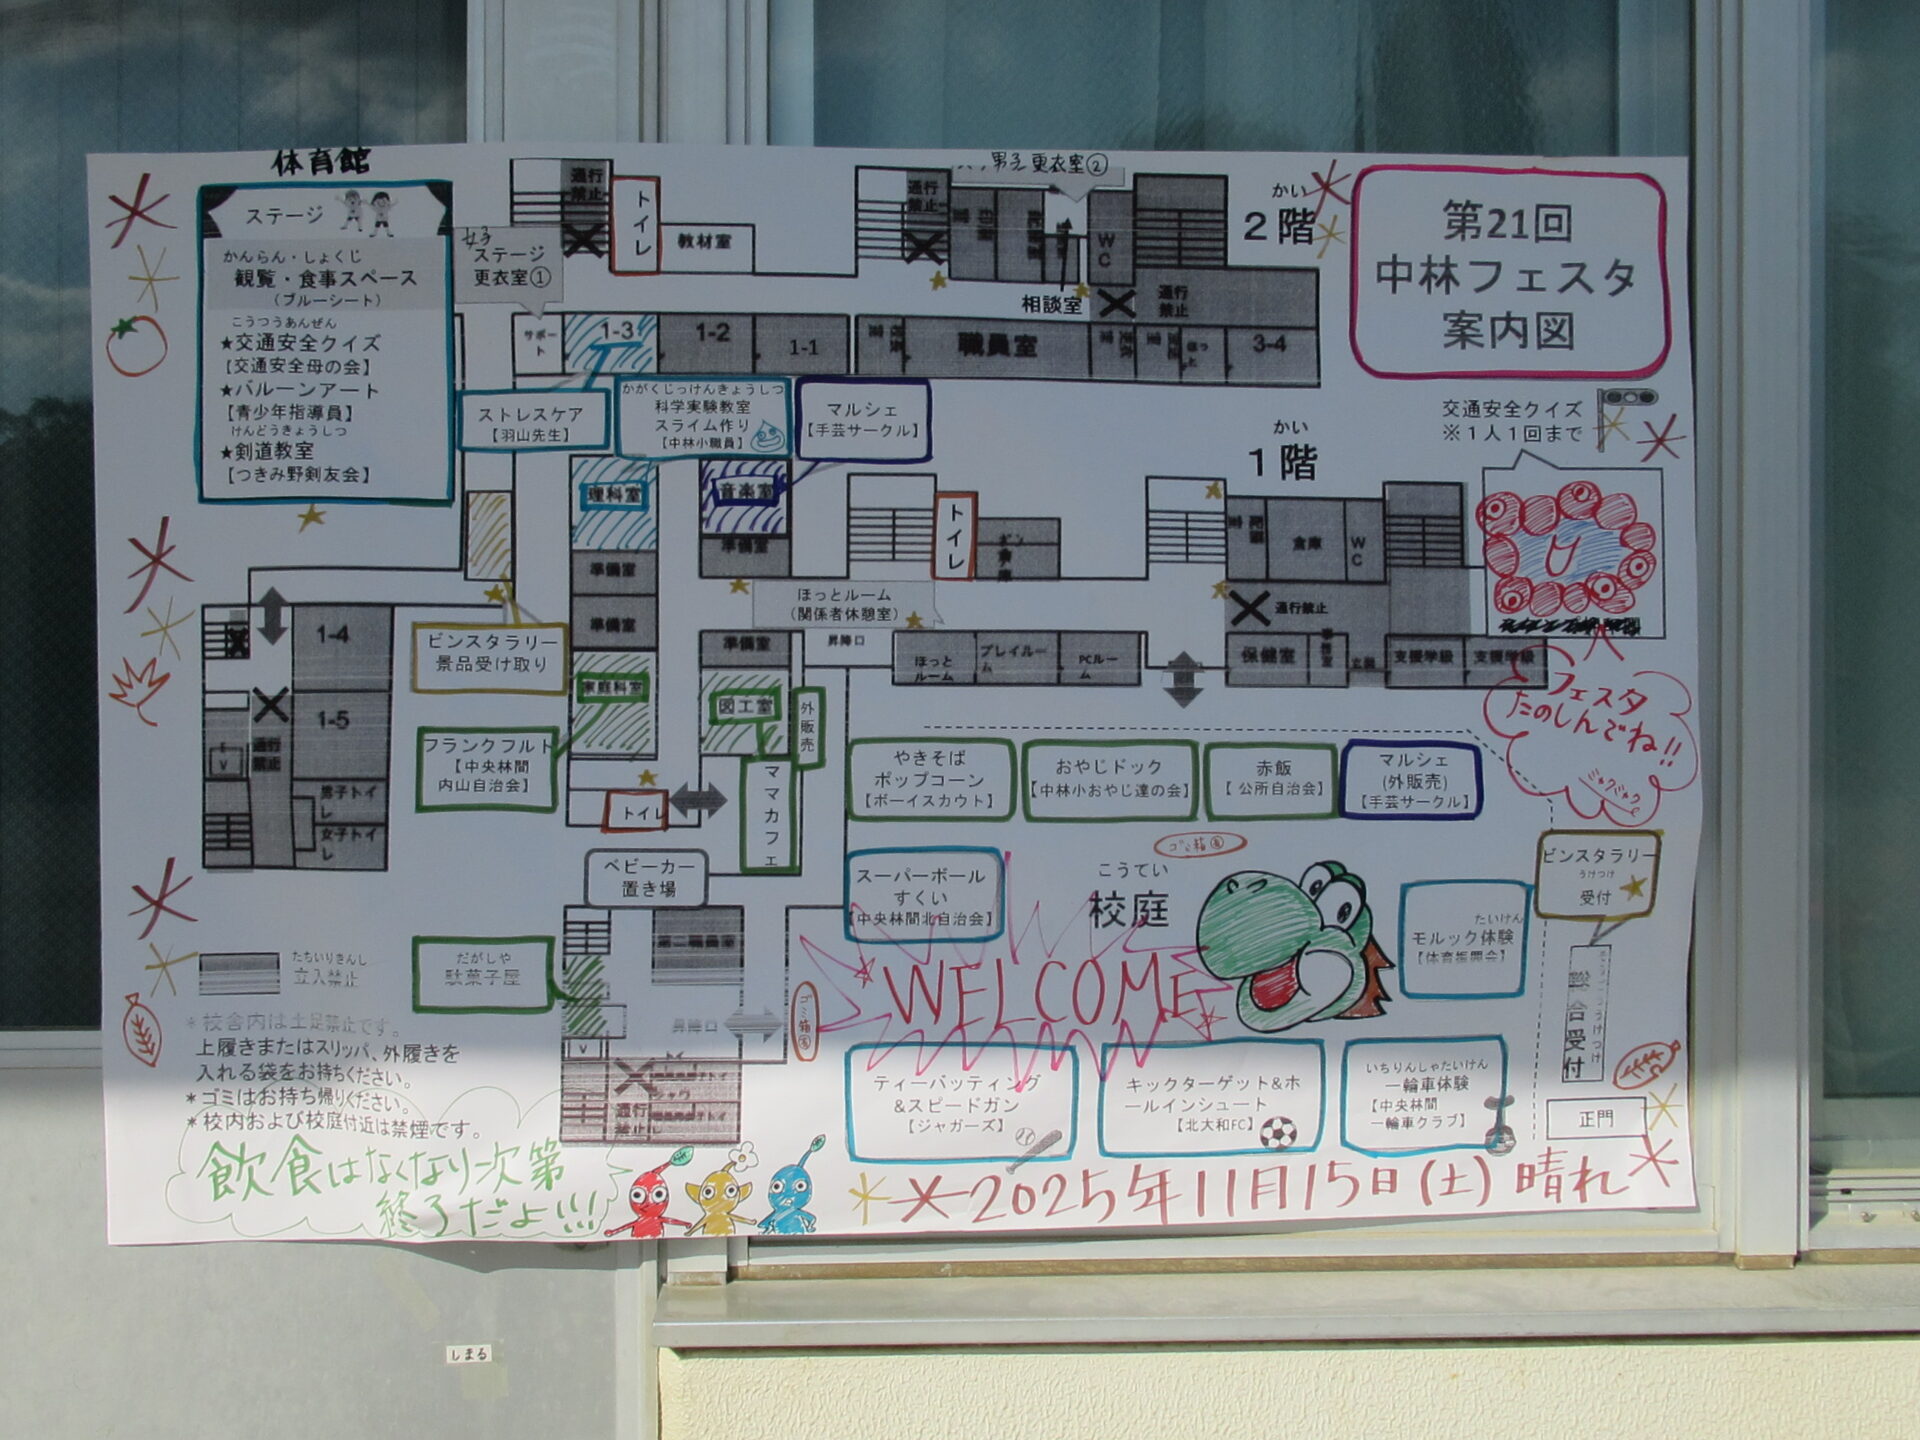 体育館
ステージ
かんらん・しょくじ
観覧・食事スペース
(ブルーシート)
こうつうあんぜん
★交通安全クイズ
【交通安全母の会】
★バルーンアート
【青少年指導員】
けんどうきょうしつ
★剣道教室
【つきみ野剣友会】
女子
ステージ
更衣室①
通行
禁止
トイレ
教材室
サポート
1-3
1-2
1-1
通行
禁止
男子更衣室②
WC
相談室
通行
禁止
職員室
3-4
かい
2階
第21回
中林フェスタ
案内図
ストレスケア
【羽山先生】
かがくじっけんきょうしつ
科学実験教室
スライム作り
【中林小職員】
マルシェ
【手芸サークル】
交通安全クイズ
※1人1回まで
かい
1階
理科室
音楽室
準備室
準備室
準備室
準備室
トイレ
倉庫
WC
通行禁止
ほっとルーム
(関係者休憩室)
昇降口
ほっと
ルーム
プレイルーム
PCルーム
保健室
支援学級
支援学級
1-4
1-5
通行
禁止
EV
男子トイレ
女子トイレ
ビンスタラリー
景品受け取り
家庭科室
図工室
外販売
フランクフルト
【中央林間
内山自治会】
トイレ
ママカフェ
ベビーカー
置き場
フェスタ
たのしんでね!!
ミャクミャク
やきそば
ポップコーン
【ボーイスカウト】
おやじドック
【中林小おやじ達の会】
赤飯
【公所自治会】
マルシェ
(外販売)
【手芸サークル】
ゴミ箱有
スーパーボール
すくい
【中央林間北自治会】
こうてい
校庭
WELCOME
たいけん
モルック体験
【体育振興会】
ビンスタラリー
うけつけ
受付
総合受付
正門
たちいりきんし
立入禁止
だがしや
駄菓子屋
第二職員室
昇降口
ゴミ箱有
通行
禁止
*校舎内は土足禁止です。
上履きまたはスリッパ、外履きを
入れる袋をお持ちください。
*ゴミはお持ち帰りください。
*校内および校庭付近は禁煙です。
ティーバッティング
&スピードガン
【ジャガーズ】
キックターゲット&ホ
ールインシュート
【北大和FC】
いちりんしゃたいけん
一輪車体験
【中央林間
一輪車クラブ】
飲食はなくなり次第
終了だよ!!!
2025年11月15日(土)晴れ
しまる